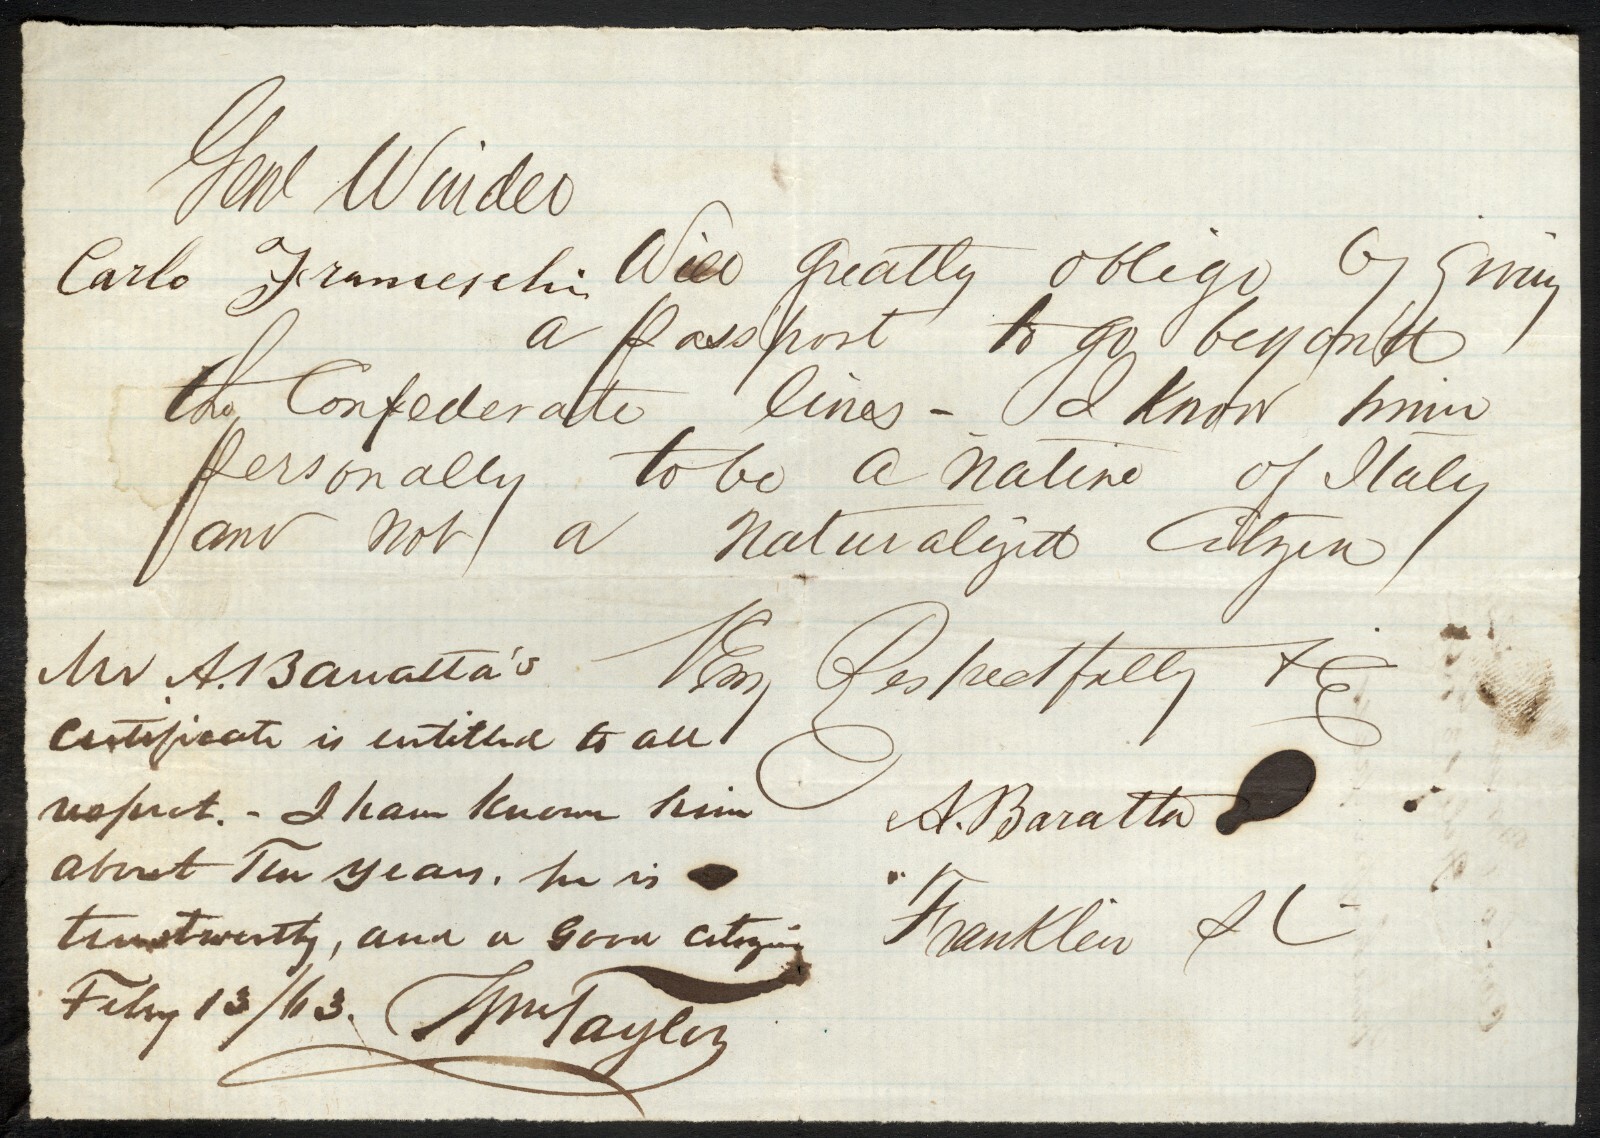 Genl Winder
Carlo Frameschi Will greatly oblige by Giving
a passport to go beyond
the Confederate lines - I know him
personally to be a native of Italy
and not a naturalized Citizen
Very Respectfully &c
A. Baratta
Franklin St
Mr A. Baratta's
certificate is entitled to all
respect. - I have known him
about Ten years. he is
trustworthy, and a good citizen
Feby 13/63. Wm Taylor